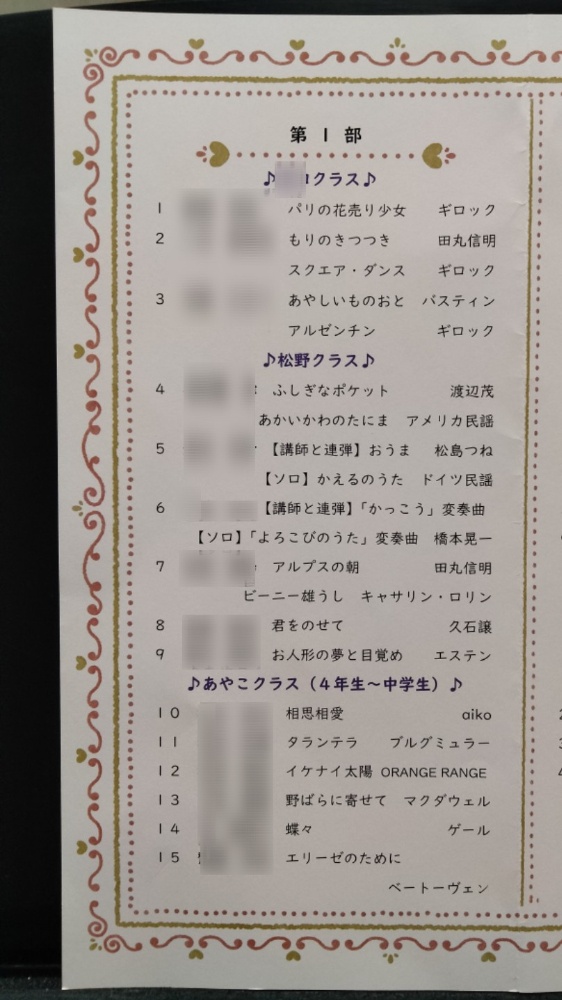 第1部
クラス♪
1 パリの花売り少女 ギロック
2 もりのきつつき 田丸信明
スクエア・ダンス ギロック
3 あやしいものおと パスティン
アルゼンチン ギロック
♪松野クラス♪
4 ふしぎなポケット 渡辺茂
あかいかわのたにま アメリカ民謡
5 【講師と連弾】おうま 松島つね
【ソロ】かえるのうた ドイツ民謡
6 【講師と連弾】「かっこう」変奏曲
【ソロ】「よろこびのうた」変奏曲 橋本晃一
7 アルプスの朝 田丸信明
ビーニー雄うし キャサリン・ロリン
8 君をのせて 久石譲
9 お人形の夢と目覚め エステン
♪あやこクラス（4年生～中学生）♪
10 相思相愛 aiko
11 タランテラ ブルグミュラー
12 イケナイ太陽 ORANGE RANGE
13 野ばらに寄せて マクダウェル
14 蝶々 ゲール
15 エリーゼのために
ベートーヴェン